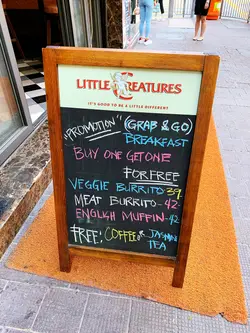 LITTLE CREATURES
IT'S GOOD TO BE A LITTLE DIFFERENT
"PROMOTION" (GRAB & GO)
BREAKFAST
BUY ONE GET ONE
FOR FREE
VEGGIE BURRITO 39
MEAT BURRITO - 42
ENGLISH MUFFIN - 42
FREE: COFFEE or JASMIN
TEA